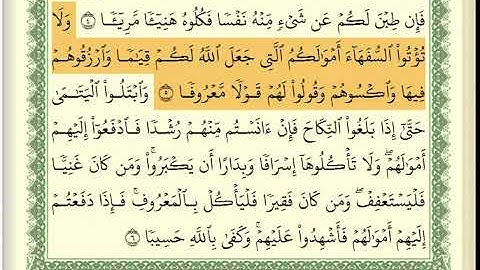 فَإِن طِبْنَ لَكُمْ عَن شَىْءٍ مِّنْهُ نَفْسًا فَكُلُوهُ هَنِيٓـًٔا مَّرِيٓـًٔا ٤ وَلَا
تُؤْتُوا۟ ٱلسُّفَهَآءَ أَمْوَٰلَكُمُ ٱلَّتِى جَعَلَ ٱللَّهُ لَكُمْ قِيَـٰمًا وَٱرْزُقُوهُمْ
فِيهَا وَٱكْسُوهُمْ وَقُولُوا۟ لَهُمْ قَوْلًا مَّعْرُوفًا ٥ وَٱبْتَلُوا۟ ٱلْيَتَـٰمَىٰ
حَتَّىٰٓ إِذَا بَلَغُوا۟ ٱلنِّكَاحَ فَإِنْ ءَانَسْتُم مِّنْهُمْ رُشْدًا فَٱدْفَعُوٓا۟ إِلَيْهِمْ
أَمْوَٰلَهُمْ ۖ وَلَا تَأْكُلُوهَآ إِسْرَافًا وَبِدَارًا أَن يَكْبَرُوا۟ ۚ وَمَن كَانَ غَنِيًّا
فَلْيَسْتَعْفِفْ ۖ وَمَن كَانَ فَقِيرًا فَلْيَأْكُلْ بِٱلْمَعْرُوفِ ۚ فَإِذَا دَفَعْتُمْ
إِلَيْهِمْ أَمْوَٰلَهُمْ فَأَشْهِدُوا۟ عَلَيْهِمْ ۚ وَكَفَىٰ بِٱللَّهِ حَسِيبًا ٦